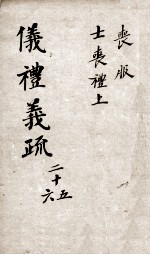 喪服
士喪禮上
儀禮義疏
二十五
六